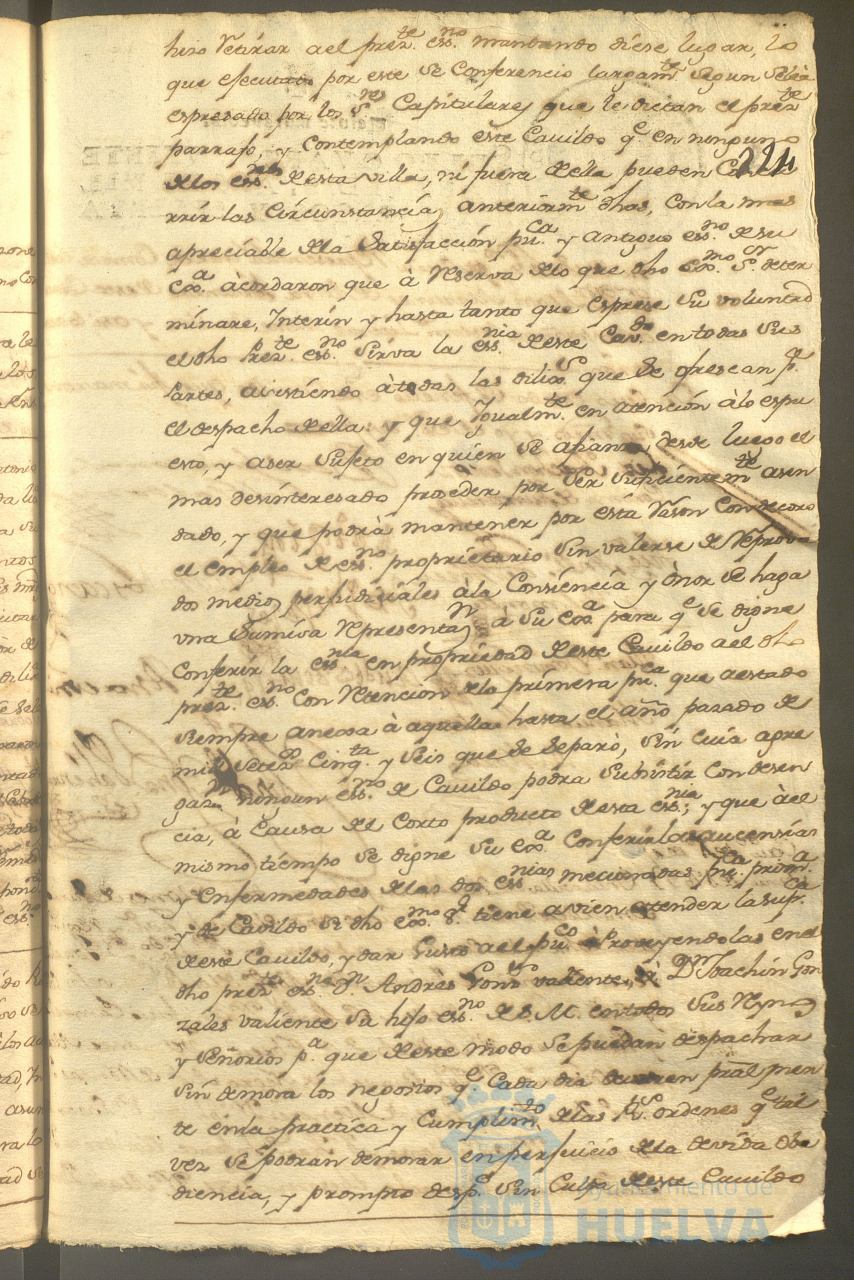 hizo retirar a el preste. essno. mandando diese lugar, lo
que efecutado por este se Conferencio largamte. segun
espresado por los Sres. Capitulares que le dictan el preste
parrafo, y Contemplando este Cavildo qe. en ninguno
224
de los essnos. de esta villa, ni fuera de ella pueden Concu
rrir las Circunstancia anteriormte. dhas, Con la mas
apreciable de la Satisfacción puca. y antiguo essno. de su
Exa. acordaron que à reserva de lo que dho Exmo. Sr. deter
mináre, Interin y hasta tanto que esprese su voluntad
el dho preste. essno. sirva la essnia. de este Cavdo. en todas sus
partes, asistiendo à todas las diligs. que se ofrescan pa.
el despacho de ella: y que Igualmte. en atención à lo espu
esto, y a ser sujeto en quien se afianza desde luego el
mas desinteresado proceder por ser suficientemte. asen
dado, y que podrà mantener por esta rason Con decoro
el empleo de essno. proprietario sin valerse de reprova
dos medios perjudiciales à la Consiencia y ònor se haga
una sumisa representazn. à su Exa. para qe. se digne
Conferir la essnia. en propriedad de este Cavildo a el dho
preste. essno. Con retencion de la primera puca. que a estado
siempre anecsa à aquella hasta el año pasado de
mil setezos. Cinqta. y seis que se separò, sin cuia agre
gazn. ningun essno. de Cavildo podra subsistir con desen
cia, à Causa del Corto producto de esta essnia; y que à el
mismo tiempo se digne su Exa. Conferir las aucensias
y enfermedades de las dos essnias mecionadas puca. prima.
y de Cavildo si dho Exmo. Sr. tiene a vien atender la supca.
de este Cavildo, y dar Gusto a el puco. Proveyendolas en el
dho preste. essno. Dn. Andrès Gonzs. valiente, à Dn. Joachin Gon
zales valiente su hijo essno. de S. M. en todos sus Reynos
y señorios pa. que de este modo se puedan despachar
sin demora los negosios qe. Cada dia pralmen
te en la practica y Cumplimto. de las Rs. ordenes qe. tal
vez se podran demorar en perjuicio de la devida obe
diencia, y prompto despo. sin Culpa de este Cavildo
Ayuntamiento de
HUELVA